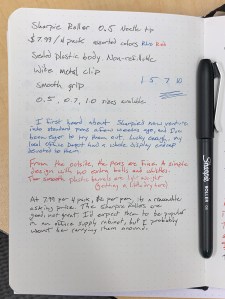 Sharpie Roller 0.5 Needle tip
$7.99 / 4 pack assorted colors Blue Red
Sealed plastic body Non-refillable
Wide metal clip
Smooth grip
0.5, 0.7, 1.0 sizes available
I first heard about Sharpie's new venture
into standard pens a few months ago, and I've
been eager to try them out. Luckily enough, my
local Office Depot had a whole display endcap
devoted to them.
From the outside, the pens are fine. A simple
design with no extra bells and whistles.
The smooth plastic barrels are lightweight
At 7.99 per 4 pack, $2 per pen, it a reasonable
asking price. The Sharpie Rollers are
good, not great. I'd expect them to be popular
in an office supply cabinet, but I probably
won't be carrying them around.
Sharpie
ROLLER